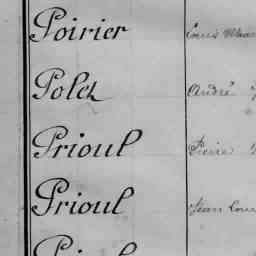 Poirier Louis
Polez André
Prioul Pierre
Prioul Jean Louis